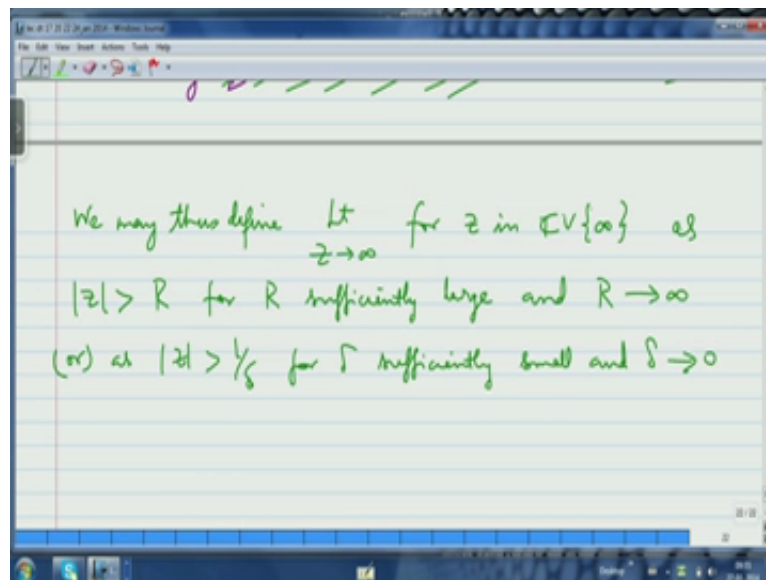 File Edit View Insert Actions Tools Help
We may thus define Lt for z in ℂ∪{∞} as
z→∞
|z| > R for R sufficiently large and R → ∞
(or) as |z| > 1/δ for δ sufficiently small and δ → 0
22